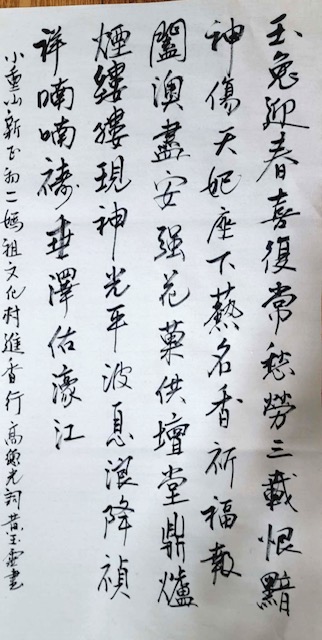 玉兔迎春喜復常愁勞三載恨黯
神傷天妃座下爇名香祈福報
闔澳盡安强花菓供壇堂鼎爐
煙縷縷現神光平波息浪降禎
祥喃喃禱垂澤佑濠江
小重山新正初二媽祖文化村進香行 高光詞玉靈書